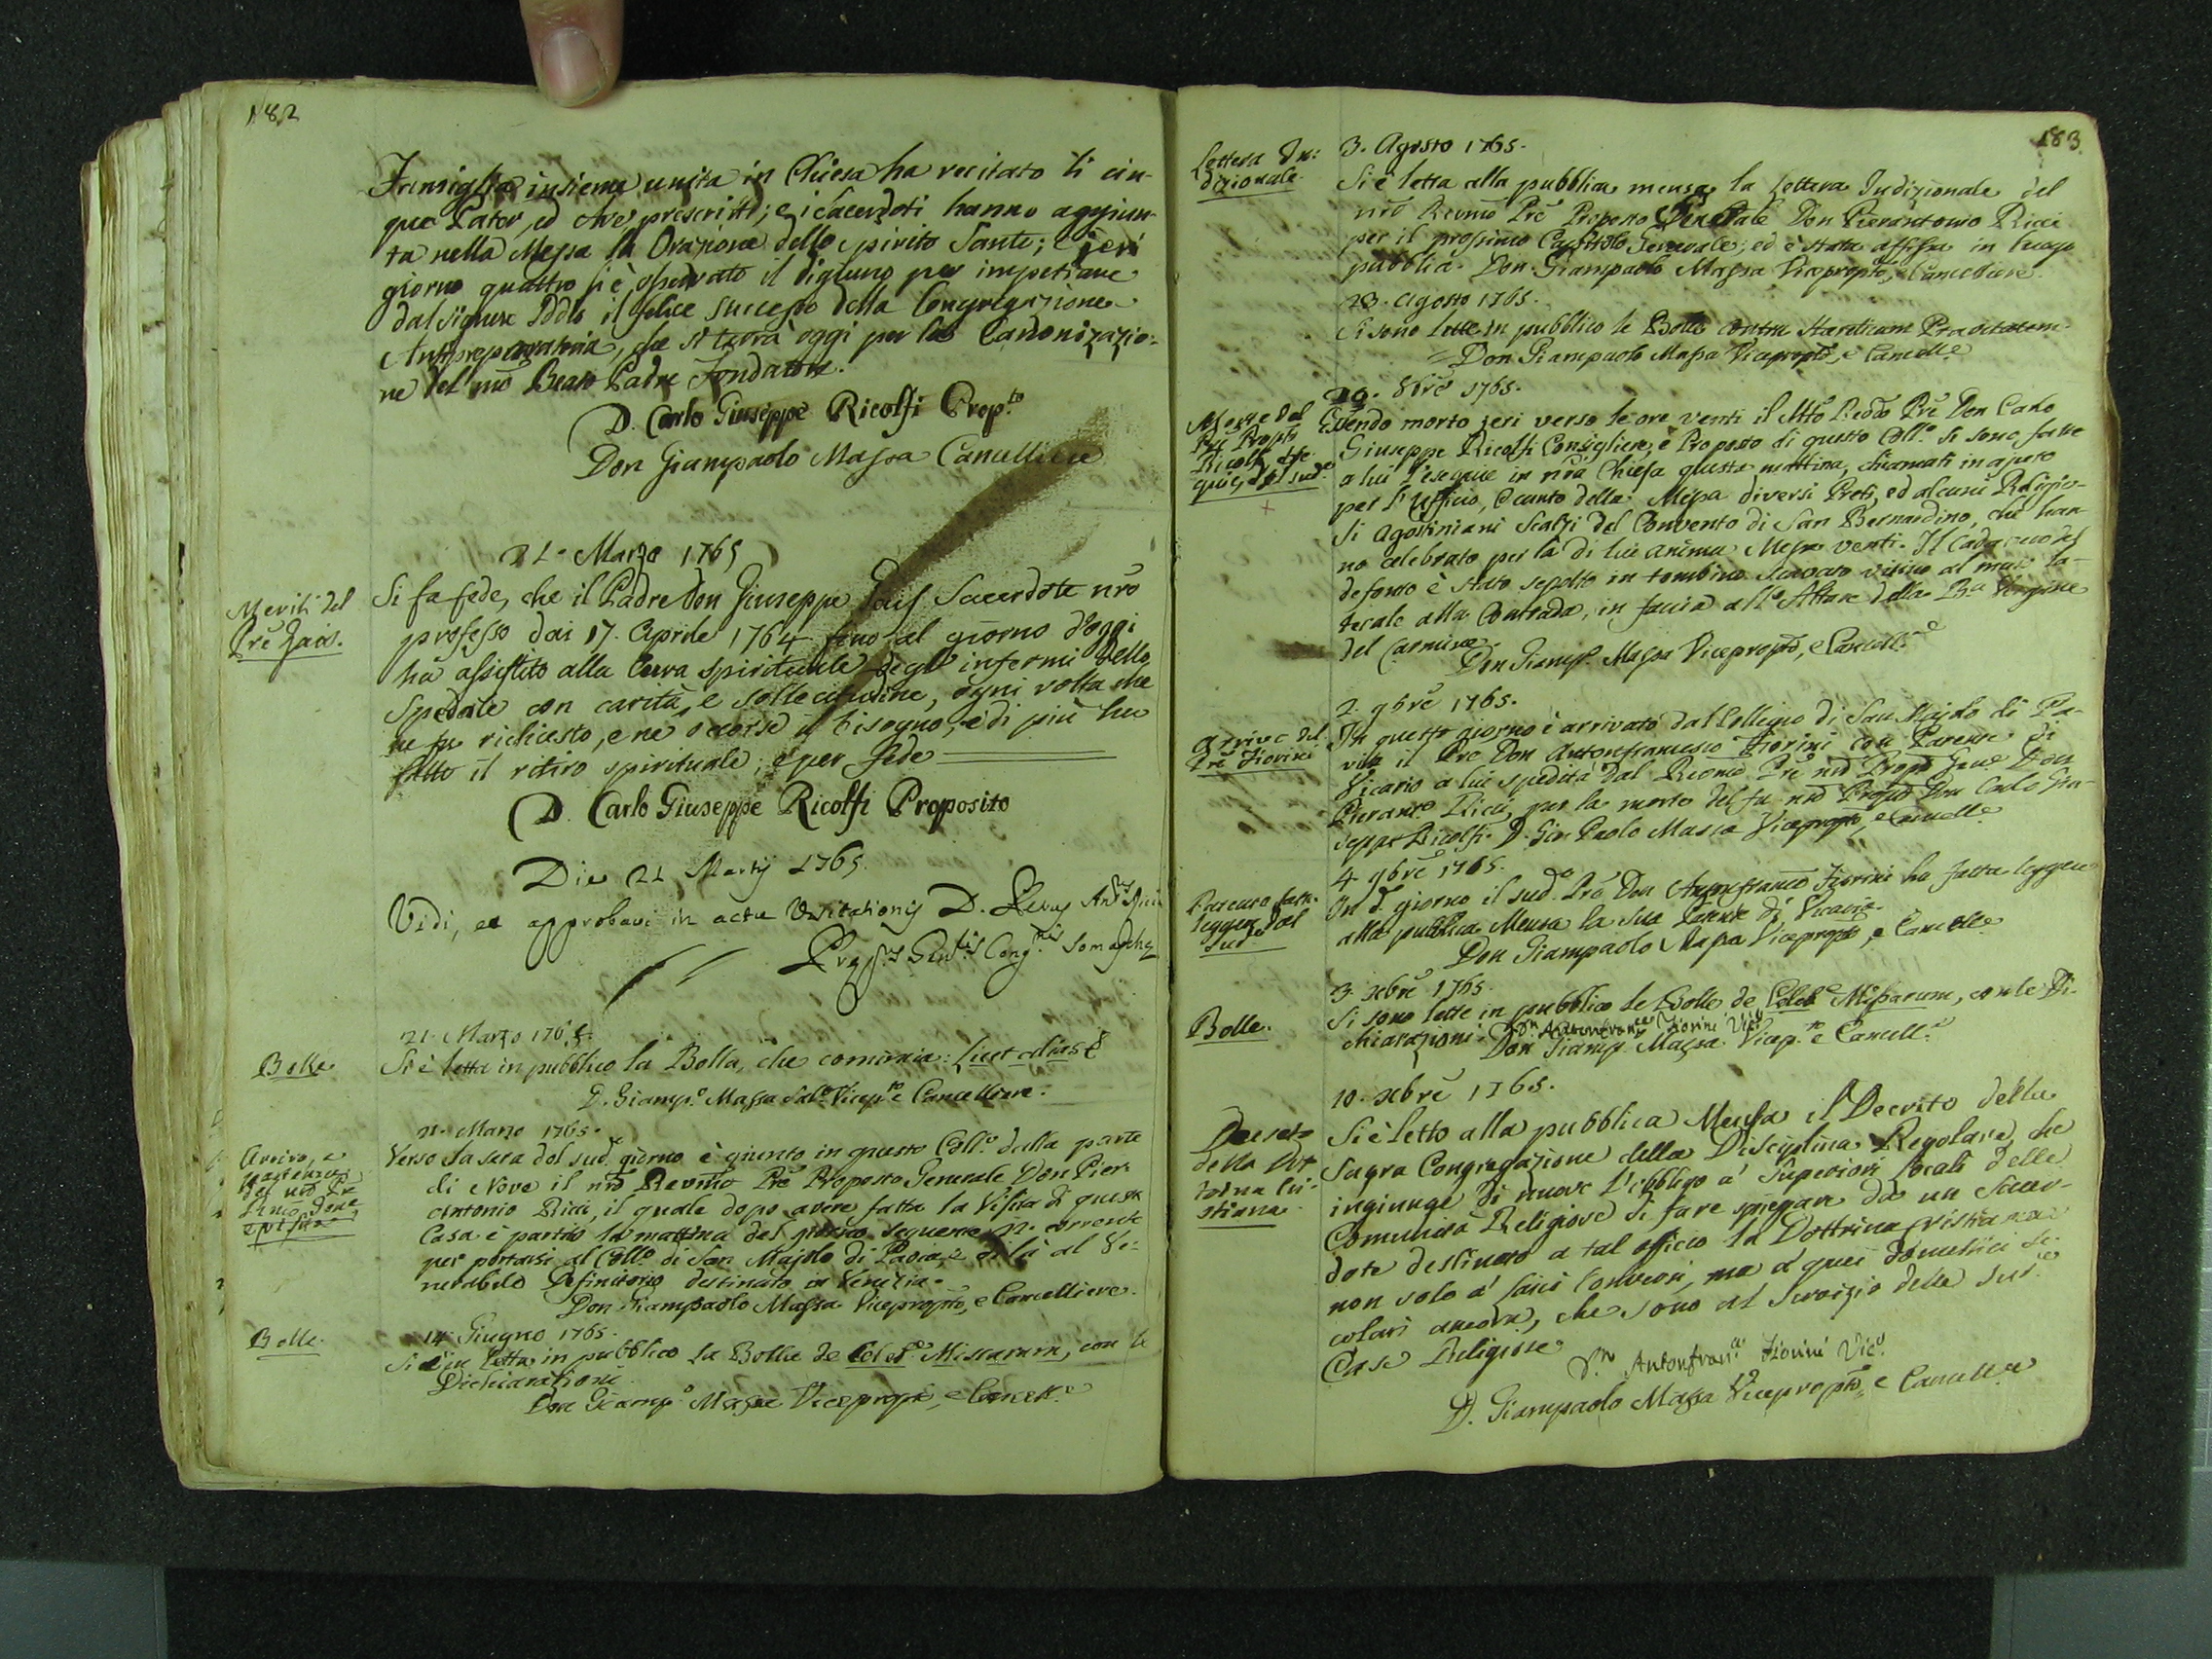 182
Famiglia insieme unita in Chiesa ha recitato li cin-
que Pater, ed Ave prescritti; e i Sacerdoti hanno aggiun-
ta nella Messa la Orazione dello Spirito Santo; e jeri
giorno quattro si è osservato il digiuno per impetrare
dal Signore Iddio il felice successo della Congregazione
Antipreparatoria, che si terrà oggi per la Canonizazio-
ne del nrõ Beato Padre Fondatore.
D. Carlo Giuseppe Ricolfi Prop.to
Don Giampaolo Massa Cancelliere
21. Marzo 1765
Meriti del
Prẽ Gais.
Si fa fede, che il Padre Don Giuseppe Gais Sacerdote nrõ
professo dai 17. Aprile 1764 fino al giorno d'oggi
ha assistito alla Cura spirituale degl' infermi dello
Spedale con carità, e sollecitudine, ogni volta che
ne fu richiesto, e ne occorse il bisogno, e di più ha
fatto il ritiro spirituale; e per fede
D. Carlo Giuseppe Ricolfi Proposito
Die 21 Martij 1765.
Vidi, et approbavi in actu Visitationis D. Petrus Ant.s Ricci
Prep.s Gen.lis Cong.nis Somaschę
21. Marzo 1765.
Bolle.
Si è letta in pubblico la Bolla, che comincia: Licet alias &
D. Giamp.o Massa Vicep.to e Cancelliere.
21. Marzo 1765.
Arrivo, e
partenza
del nrõ Prẽ
e visita
Verso la sera del sud.o giorno è giunto in questo Coll.o dalla parte
di Novi il nrõ Revmõ Prẽ Proposto Generale Don Pier
Antonio Ricci, il quale dopo avere fatta la Visita di questa
Casa è partito la mattina del giorno seguente corrente
per portarsi al Coll.o di San Majolo di Pavia, e di là al Ve-
nerabile Definitorio destinato in Venezia.
Don Giampaolo Massa Viceproptõ, e Cancelliere.
Bolle.
14. Giugno 1765.
Si è letta in pubblico la Bolla de Celeb.e Missarum, con le
Dichiarazioni
Don Giamp.o Massa Viceproptõ, e Cancell.e
183
Lettera In:
dizionale.
3. Agosto 1765.
Si è letta alla pubblica mensa la Lettera Indizionale del
nrõ Revmõ Prẽ Proposto Generale Don Pierantonio Ricci
per il prossimo Capitolo Generale; ed è stata affissa in luogo
pubblico. Don Giampaolo Massa Viceproptõ, e Cancelliere.
23. Agosto 1765.
Si sono lette in pubblico le Bolle contra Hæreticam Pravitatem.
Don Giampaolo Massa Viceproptõ, e Cancell.e
29. 8brẽ 1765.
Morte del
Prẽ Proptõ
Ricolfi, Ese-
quie del sud.o
Essendo morto jeri verso le ore venti il Mtõ Revdõ Prẽ Don Carlo
Giuseppe Ricolfi Consigliere, e Proposto di questo Coll.o si sono fatte
a lui l'esequie in nrã Chiesa questa mattina, chiamati in ajuto
per l'Ufficio, e canto della Messa diversi Preti, ed alcuni Religio-
si Agostiniani Scalzi del Convento di San Bernardino, che han-
no celebrato per la di lui anima Messe venti. Il Cadavero del
defonto è stato sepolto in tombino scavato vicino al muro la-
terale alla Contrada, in faccia all'Altare della B.a Vergine
del Carmine.
Don Giamp.o Massa Viceproptõ, e Cancell.e
2. 9brẽ 1765.
Arrivo del
Prẽ Fiorini
In questo giorno è arrivato dal Collegio di San Majolo di Pa-
via il Prẽ Don Antonfrancesco Fiorini con Patente di
Vicario a lui spedita dal Revmõ Prẽ nrõ Proptõ Gen.e Don
Pierant.o Ricci, per la morte del fu nrõ Proptõ Don Carlo Giu-
seppe Ricolfi. D. Gio. Paolo Massa Viceproptõ, e Cancell.e
4. 9brẽ 1765.
Patente fatta
leggere dal
sud.o
In d.o giorno il sud.o Prẽ Don Antonfranco Fiorini ha fatta leggere
alla pubblica Mensa la sua Patente di Vicario.
Don Giampaolo Massa Viceproptõ, e Cancell.e
3. Xbrẽ 1765.
Bolle.
Si sono lette in pubblico le Bolle de Celeb.e Missarum, con le Di-
chiarazioni. D.n Antonfran.co Fiorini Vic.o
Don Giamp. Massa Vicep.to e Cancell.e
10. Xbrẽ 1765.
Decreto
della Dot-
trina Cri-
stiana
Si è letto alla pubblica Mensa il Decreto della
Sagra Congregazione della Disciplina Regolare, che
ingiunge di nuovo l'obbligo a' Superiori locali delle
Comunità Religiose di fare spiegare da un Sacer-
dote destinato a tal officio la Dottrina Cristiana
non solo a' Laici Conversi, ma a quei domestici se-
colari ancora, che sono al Servizio delle sud.e
Case Religiose.
D.n Antonfran.co Fiorini Vic.o
D. Giampaolo Massa Viceproptõ, e Cancell.e